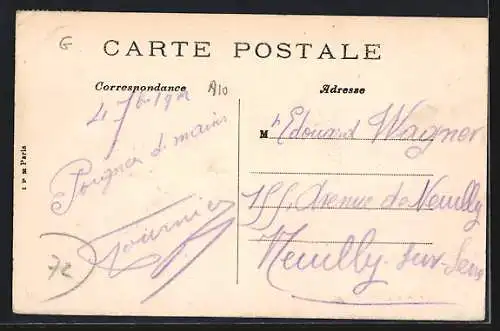 G
CARTE POSTALE
Correspondance
A10
Adresse
4 7bre 1912
Poignée de mains
Fournier
72
M r Edouard Wagner
155, Avenue de Neuilly
Neuilly-sur-Seine